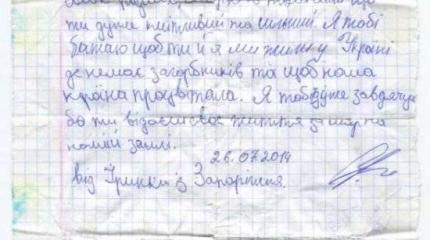 ти дуже кмітливий та сильний. Я тобі
бажаю щоб ти й я ми жили у Україні
де немає загарбників та щоб наша
країна процвітала. Я тобі дуже завдячую
бо ти віддаєш своє життя за мир на
нашій землі.
26.07.2014
від Іринки із Запоріжжя.